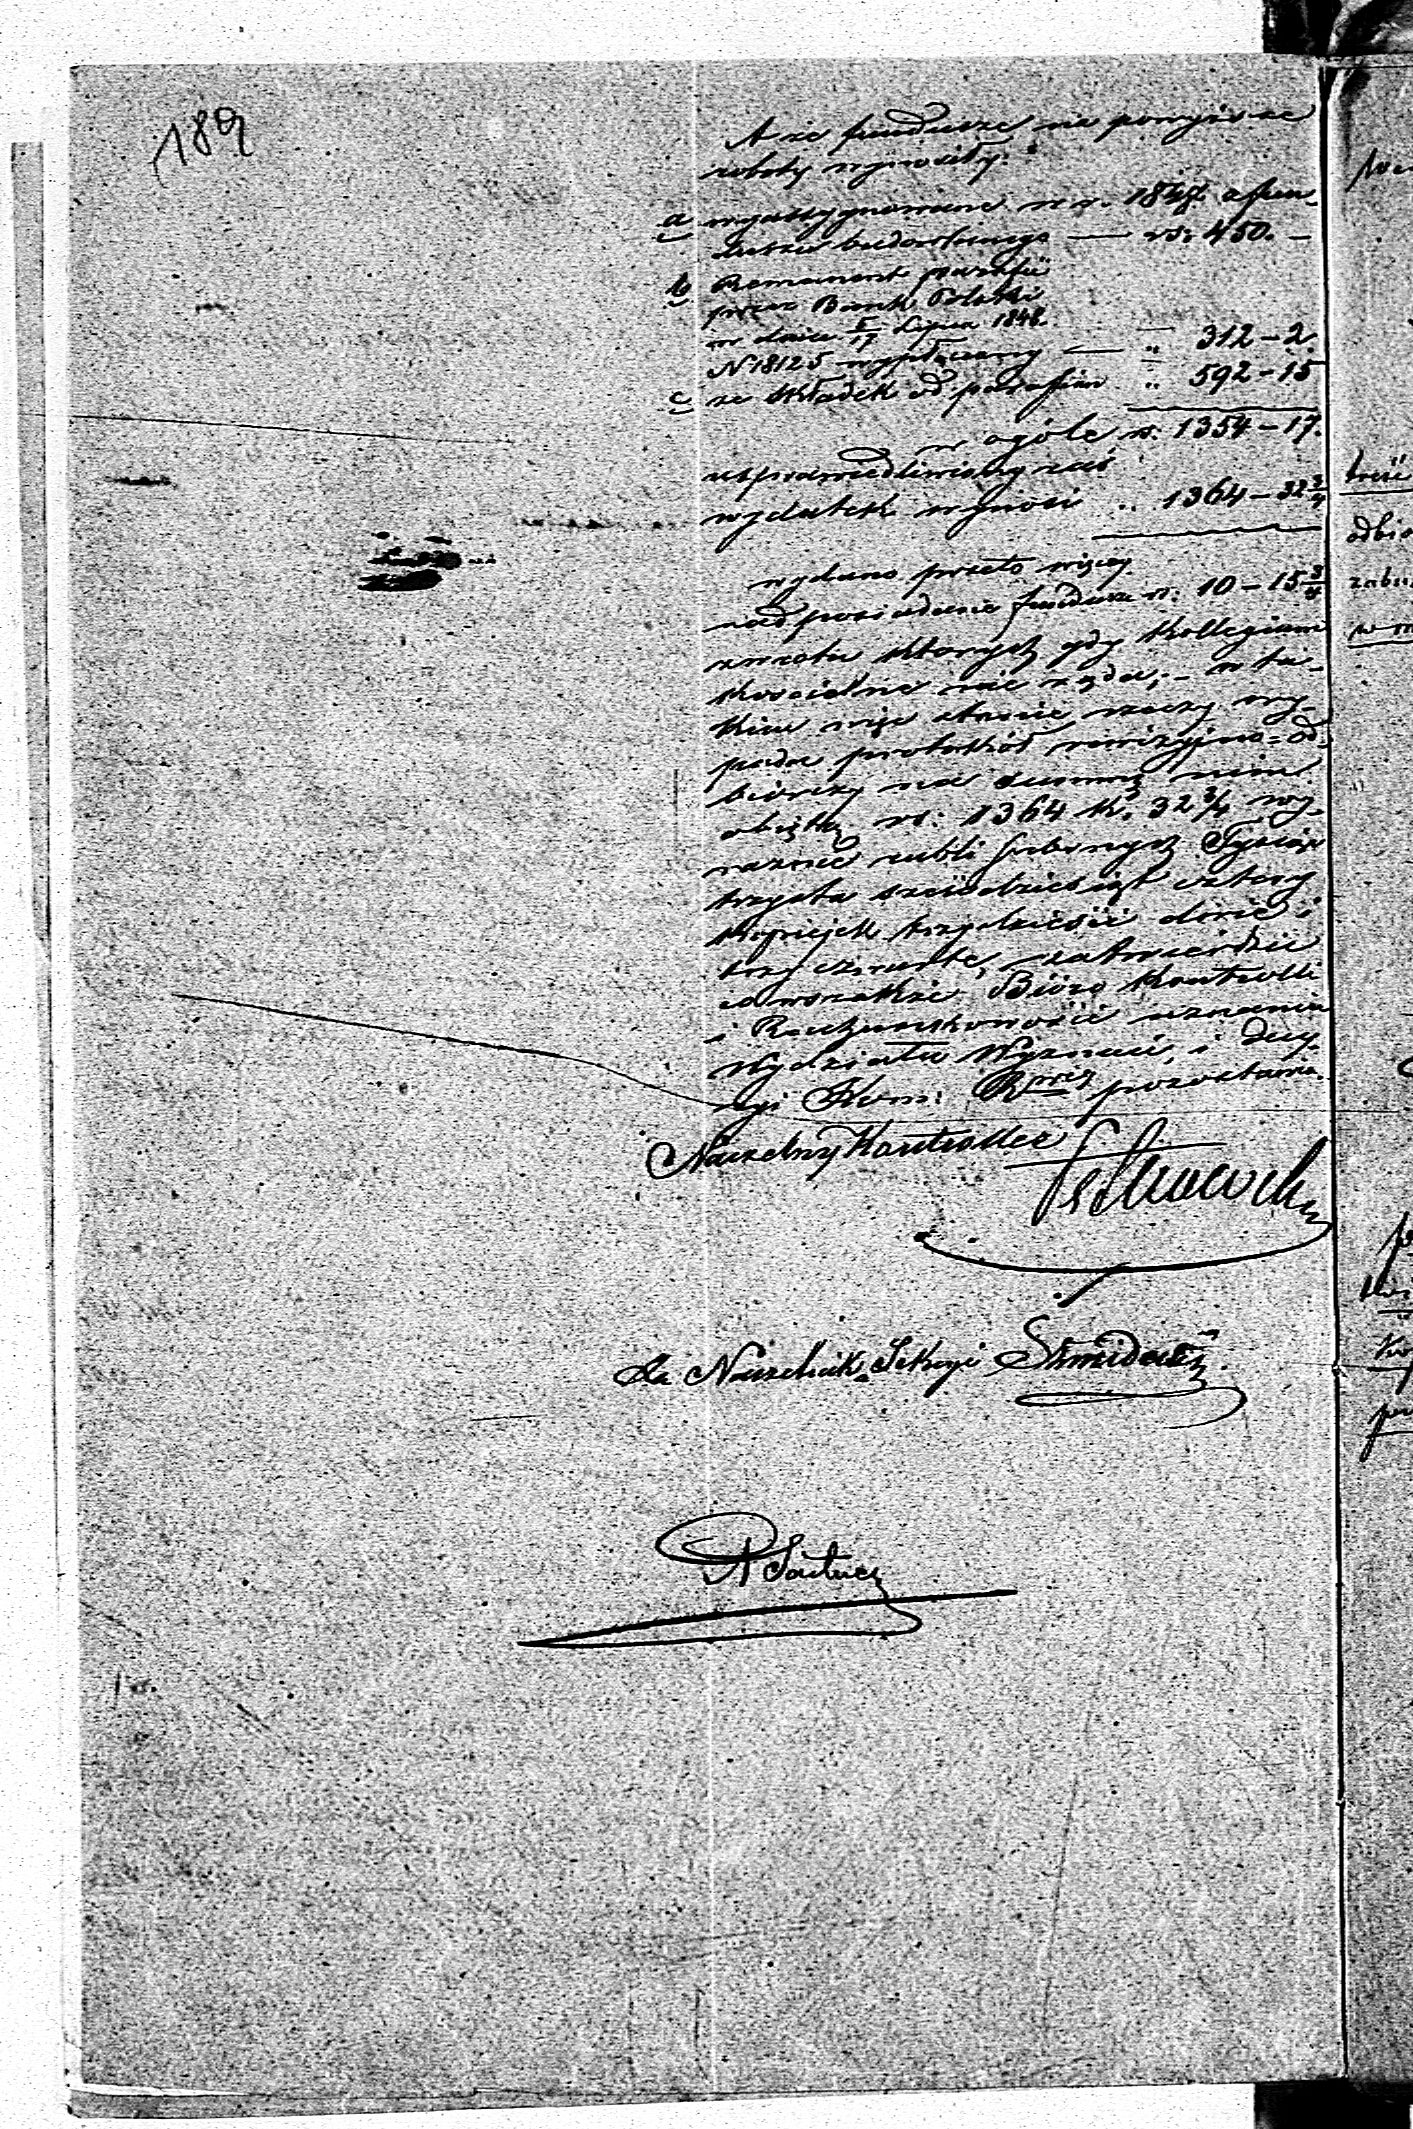 189
A że fundusze na powyższe
roboty wynosiły:
a wyassygnowane w r. 1847 z fun-
duszu budowlanego — rs: 450. —
b Remanent parafii
przez Bank Polski
w dniu 5/17 Lipca 1848.
N 18125 wypłacony — „ 312 – 2.
c ze składek od parafian „ 592 – 15
w ogóle rs: 1354 – 17.
usprawiedliwiony zaś
wydatek wynosi „ 1364 – 32 3/4
wydano przeto więcej
nad posiadane fundusze rs: 10 – 15 3/4
zwrotu których gdy Kollegium
kościelne nie żąda; – w ta-
kim więc stanie rzeczy wy-
pada protokół rewizyjno = od-
biorczy na summę nim
objętą rs: 1364 k. 32 3/4 wy-
raźnie rubli srebrnych Tysiąc
trzysta sześćdziesiąt cztery
kopiejek trzydzieści dwie i
trzy czwarte, zatwierdzić
co wszakże Bióro Kontrolli
i Rachunkowości uznaniu
Wydziału Wyznań, i decy-
zyi Kom: R pozostawia.
Naczelny Kontroller
Za Naczelnik Sekcyi